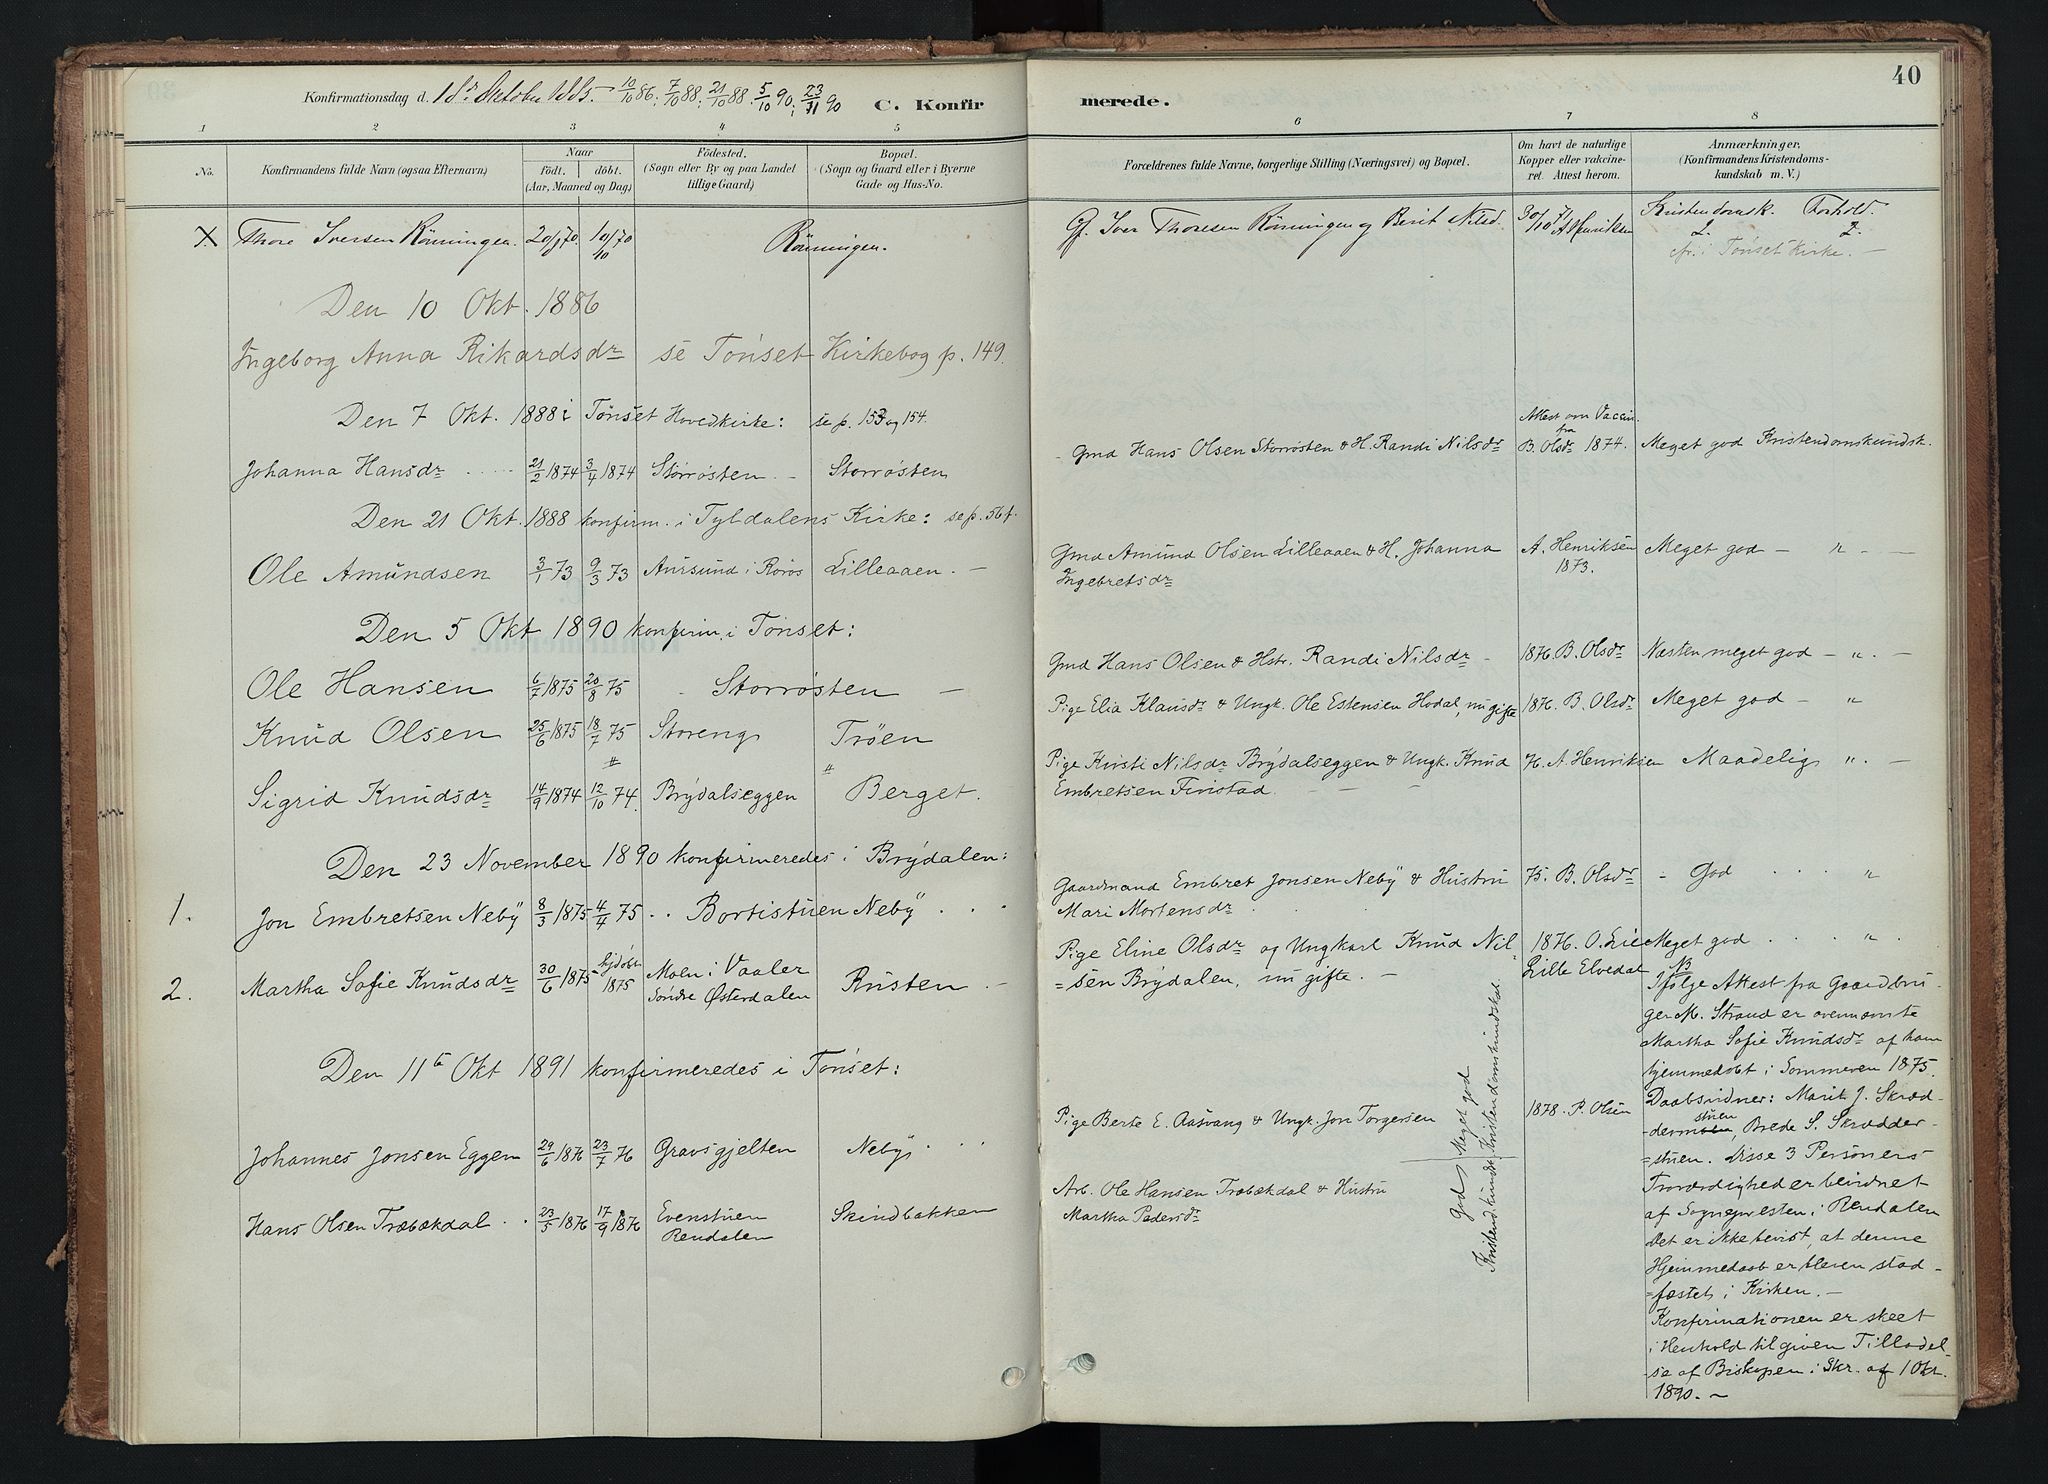 40
Konfirmationsdag d. 18de Oktober 1885. 10/10 86; 7/10 88; 21/10 88. 5/10 90; 23/11 90
C. Konfirmerede.
1 2 3 4 5 6 7 8
No. Konfirmandens fulde Navn (ogsaa Efternavn) Naar født. døbt. (Aar, Maaned og Dag) Fødested. (Sogn eller By og paa Landet tillige Gaard) Bopæl. (Sogn og Gaard eller i Byerne Gade og Hus-No. Forældrenes fulde Navne, borgerlige Stilling (Næringsvei) og Bopæl. Om havt de naturlige Kopper eller vakcineret. Attest herom. Anmærkninger. (Konfirmandens Kristendomskundskab m. V.)
Thore Iversen Rönningen. 10/70 10 Rönningen. Gf. Iver Thoresen Rönningen og Berit Nilsd. 30/10 71 A Henriksen Kristendomsk. 2. Forhold. 2.
i Tønset Kirke. —
Den 10 Okt. 1886
Ingeborg Anna Rikardsdr se Tønset Kirkebog p. 149.
Den 7 Okt. 1888 i Tønset Hovedkirke: se p. 153 og 154.
Johanna Hansdr 21/2 1874 3/4 1874 Storrøsten — Storrøsten Gmd Hans Olsen Storrøsten & H. Randi Nilsdr Attest om Vaccin. fra B. Olsdr 1874. Meget god Kristendomskundsk.
Den 21 Okt. 1888 konfirm. i Tyldalens Kirke: se p. 56 f.
Ole Amundsen 3/1 73 9/3 73 Aursund i Røros Lilleaaen. — Gmd Amund Olsen Lilleaaen & H. Johanna A. Henriksen 1873. Meget god — " —
Ingebretsdr
Den 5 Okt 1890 konfirm. i Tønset:
Ole Hansen 6/7 1875 20/8 75 Storrøsten — Gmd Hans Olsen & Hstr. Randi Nilsdr — 1876. B. Olsdr Næsten meget god — " —
Knud Olsen 25/6 1875 18/7 75 Storeng Trøen Pige Elia Klausdr & Ungk. Ole Estensen Hodal, nu gifte 1876. B. Olsdr Meget god — "
Sigrid Knudsdr 14/9 1874 12/10 74. Brydalseggen Berget. Pige Kirsti Nilsdr Brydalseggen & Ungk. Knud 76. A. Henriksen Maadelig " —
Embretsen Finstad.
Den 23 November 1890 konfirmeredes i Brydalen:
1. Jon Embretsen Neby 8/3 1875 4/4 75 Bortistuen Neby Gaardmand Embret Jonsen Neby & Hustru 75. B. Olsdr — God "
Mari Mortensdr
2. Martha Sofie Knudsdr 30/6 1875 hjdøbt 1875 Moen i Vaaler Søndre Østerdalen Rusten — Pige Eline Olsdr og Ungkarl Knud Nil 1876. O. Lie Lille Elvedal Meget god "
=sen Brydalen, nu gifte. —
NB
Ifølge Attest fra Gaardbru-
ger M. Strand er ovennævnte
Martha Sofie Knudsdr af ham
hjemmedøbt i Sommeren 1875.
Daabsvidner: Marit J. Skræd-
derstuen, Brede S. Skrædder-
=stuen. Disse 3 Personers
Troværdighed er bevidnet
af Sognepresten i Rendalen
Det er ikke bevist, at denne
Hjemmedaab er bleven stad-
=fæstet i Kirken. —
Konfirmationen er skeet
i Henhold til given Tilladel-
se af Biskopen i Skr. af 1 Okt.
1890. —
Den 11te Okt 1891 konfirmeredes i Tønset:
Johannes Jonsen Eggen 29/6 1876 23/7 76 Gravsgjelten Neby Pige Berte E. Aasvang & Ungk. Jon Torgersen Meget god Kristendomskundskab. 1878. P. Olsen
Hans Olsen Træbækdal 23/5 1876 17/9 1876 Evenstuen Rendalen Skindbakken Arb. Ole Hansen Træbækdal & Hustru God Kristendkundsk.
Martha Pedersdr